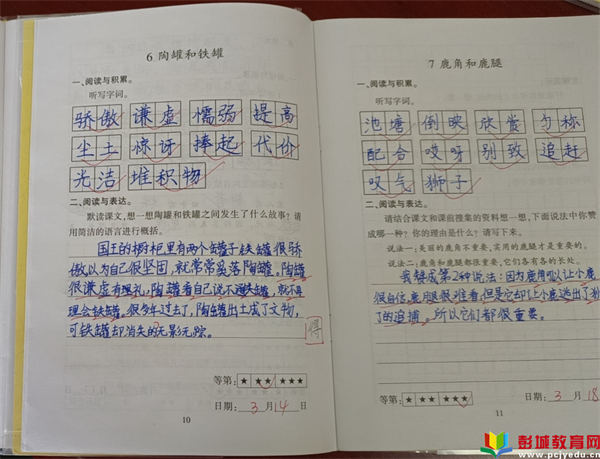 6 陶罐和铁罐
一、阅读与积累。
听写字词。
骄傲 谦虚 懦弱 提高
尘土 惊讶 捧起 代价
光洁 堆积物
二、阅读与表达。
默读课文,想一想陶罐和铁罐之间发生了什么故事?请
用简洁的语言进行概括。
国王的橱柜里有两个罐子铁罐很骄
傲以为自己很坚固,就常常奚落陶罐。陶罐
很谦虚有理礼,陶罐看自己说不通铁罐,就不再
理会铁罐。很多年过去了,陶罐出土成了文物,
可铁罐却消失的无影无踪。
得
等第: ★ ★★ ★★★
日期: 3 月 14 日
10
7 鹿角和鹿腿
一、阅读与积累。
听写字词。
池塘 倒映 欣赏 匀称
配合 哎呀 别致 追赶
叹气 狮子
二、阅读与表达。
请结合课文和课前搜集的资料想一想,下面说法中你赞
成哪一种?你的理由是什么?请写下来。
说法一:美丽的鹿角不重要,实用的鹿腿才是重要的。
说法二:鹿角和鹿腿都很重要,它们各有各的长处。
我赞成第2种说法:因为鹿角可以让小鹿
很自信,鹿腿很难看,但是它却让小鹿逃出了狮
了的追捕。所以它们都很重要。
等第: ★ ★★ ★★★
日期: 3 月 18
11
彭城教育网
www.pcjyedu.cn